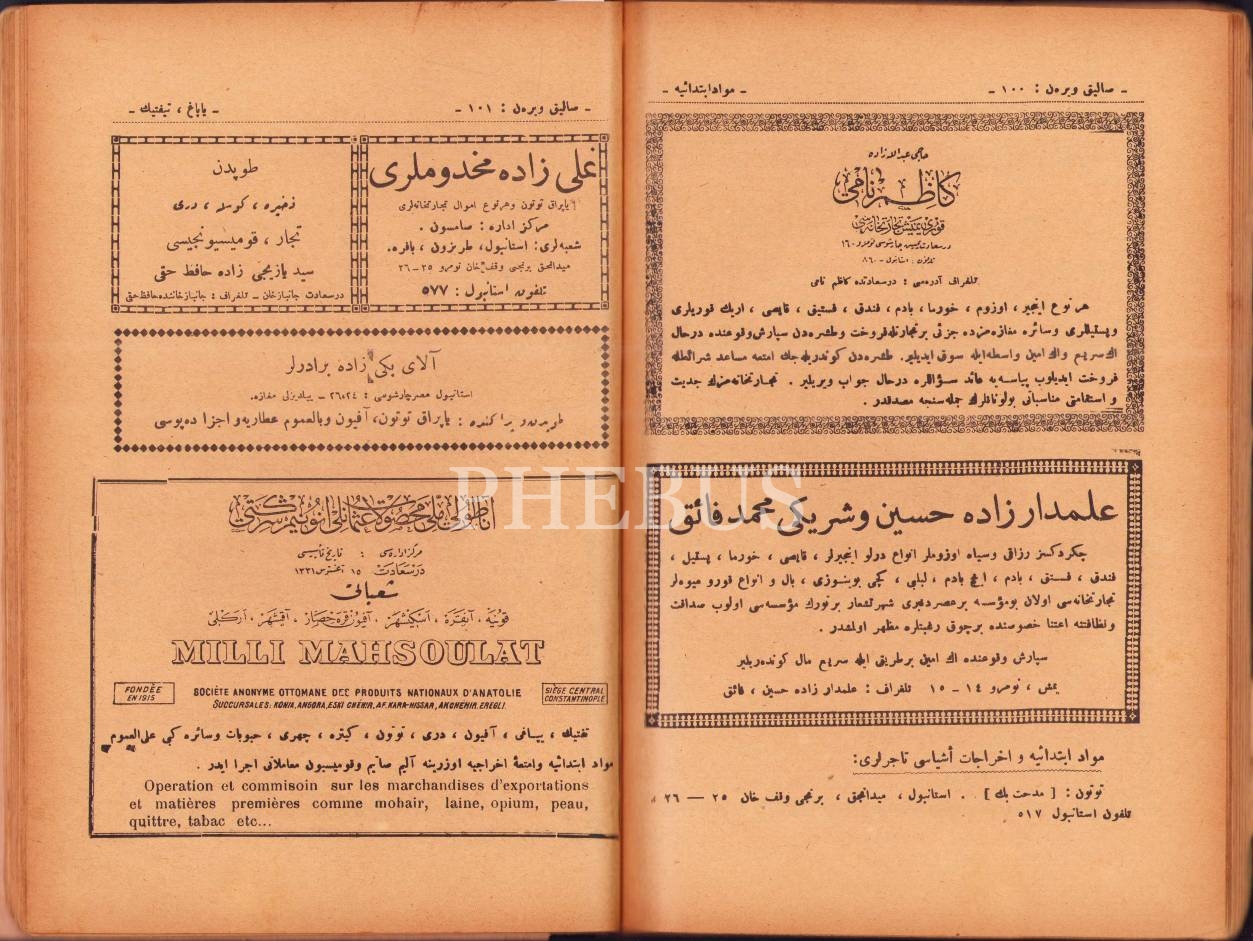 ـ صاليق ويره‌ن : ١٠٠ ـ
ـ مواد ابتدائيه ـ
حاجى عبدالله زاده
كاظم نامى
قورى يميش تجارتخانه‌سى
تلغراف آدره‌سى : درسعادتده كاظم نامى
هر نوع اينجير ، اوزوم ، خورما ، بادم ، فندق ، فستيق ، قايصى ، اريك قوريلرى
و پستيللرى وسائره مغازه‌مزده جزئى بر تجارتله فروخت وطشره‌دن سپارش وقوعنده درحال
اك سريع واك امين واسطه ايله سوق ايديلير. طشره‌دن كوندريله‌جك امتعه مساعد شرائطله
فروخت ايديلوب پياسه‌يه عائد سؤاللره درحال جواب ويريلير . تجارتخانه‌مزك جديت
و استقامتى مناسباتى بولونانلرك جمله‌سنجه مصدقدر .
علمدار زاده حسين وشريكى محمد فائق
چكردكسز رزاقى وسياه اوزوملر انواع درلو اينجيرلر ، قايصى ، خورما ، پستيل ،
فندق ، فستق ، بادم ، ايچ بادم ، لبلبى ، كچى بوينوزى ، بال و انواع قورو ميوه‌لر
تجارتخانه‌سى اولان بومؤسسه بر عصردنبرى شهرتشعار بر تورك مؤسسه‌سى اولوب صداقت
ونظافته اعتنا خصوصنده برچوق رغبتلره مظهر اولمشدر .
سپارش وقوعنده اك امين بر طريق ايله سريع مال كونده‌ريلير
يمش ، نومرو ١٤ ـ ١٥ تلغراف : علمدار زاده حسين ، فائق
مواد ابتدائيه و اخراجات أشياسى تاجرلرى:
توتون : [ مدحت بك ] . استانبول ، ميدانجق ، برنجى وقف خان ٢٥ — ٢٦
تلفون استانبول ٥١٧
ـ صاليق ويره‌ن : ١٠١ ـ
ـ ياپاغ ، تيفتيك ـ
نملى زاده مخدوملرى
ياپراق توتون وهر نوع اموال تجارتخانه‌لرى
مركز اداره : سامسون .
شعبه‌لرى: استانبول، طرابزون ، بافره.
ميدانجق برنجى وقف خان نومرو ٢٥ ـ ٢٦
تلفون استانبول : ٥٧٧
طوپدن
ذخيره ، كوسله ، درى
تجار ، قوميسيونجيسى
سيد يازيجى زاده حافظ حقى
درسعادت جانباز خان ـ تلغراف : جانباز خاننده حافظ حقى
آلاى بكى زاده برادرلر
استانبول مصر چارشوسى : ٢٤ـ٢٦ ـ ييلديزلى مغازه.
طوپدن و پراكنده : ياپراق توتون، آفيون وبالعموم عطاريه واجزا ده‌پوسى
اناطولى ملى محصولات عثمانلى انونيم شركتى
مركز اداره‌سى : تاريخ تأسيسى
درسعادت ١٥ اغستوس ١٣٣١
شعباتى
قونيه ، آنقره ، اسكيشهر ، آفيون قره حصار ، آقشهر ، اركلى
MILLI MAHSOULAT
FONDÉE EN 1915
SOCIÉTE ANONYME OTTOMANE DES PRODUITS NATIONAUX D'ANATOLIE
SIÈGE CENTRAL CONSTANTINOPLE
SUCCURSALES: KONIA, ANGORA, ESKI CHÉHIR, AF. KARA-HISSAR, AKCHEHIR, EREGLI.
تفتيك ، يپاغى ، آفيون ، درى ، توتون ، كيتره ، جهرى ، حبوبات وسائره كبى على العموم
مواد ابتدائيه وامتعۀ اخراجيه اوزرينه آليم صاتيم وقوميسيون معاملاتى اجرا ايدر .
Operation et commisoin sur les marchandises d'exportations
et matières premières comme mohair, laine, opium, peau,
quittre, tabac etc...
PHEBUS